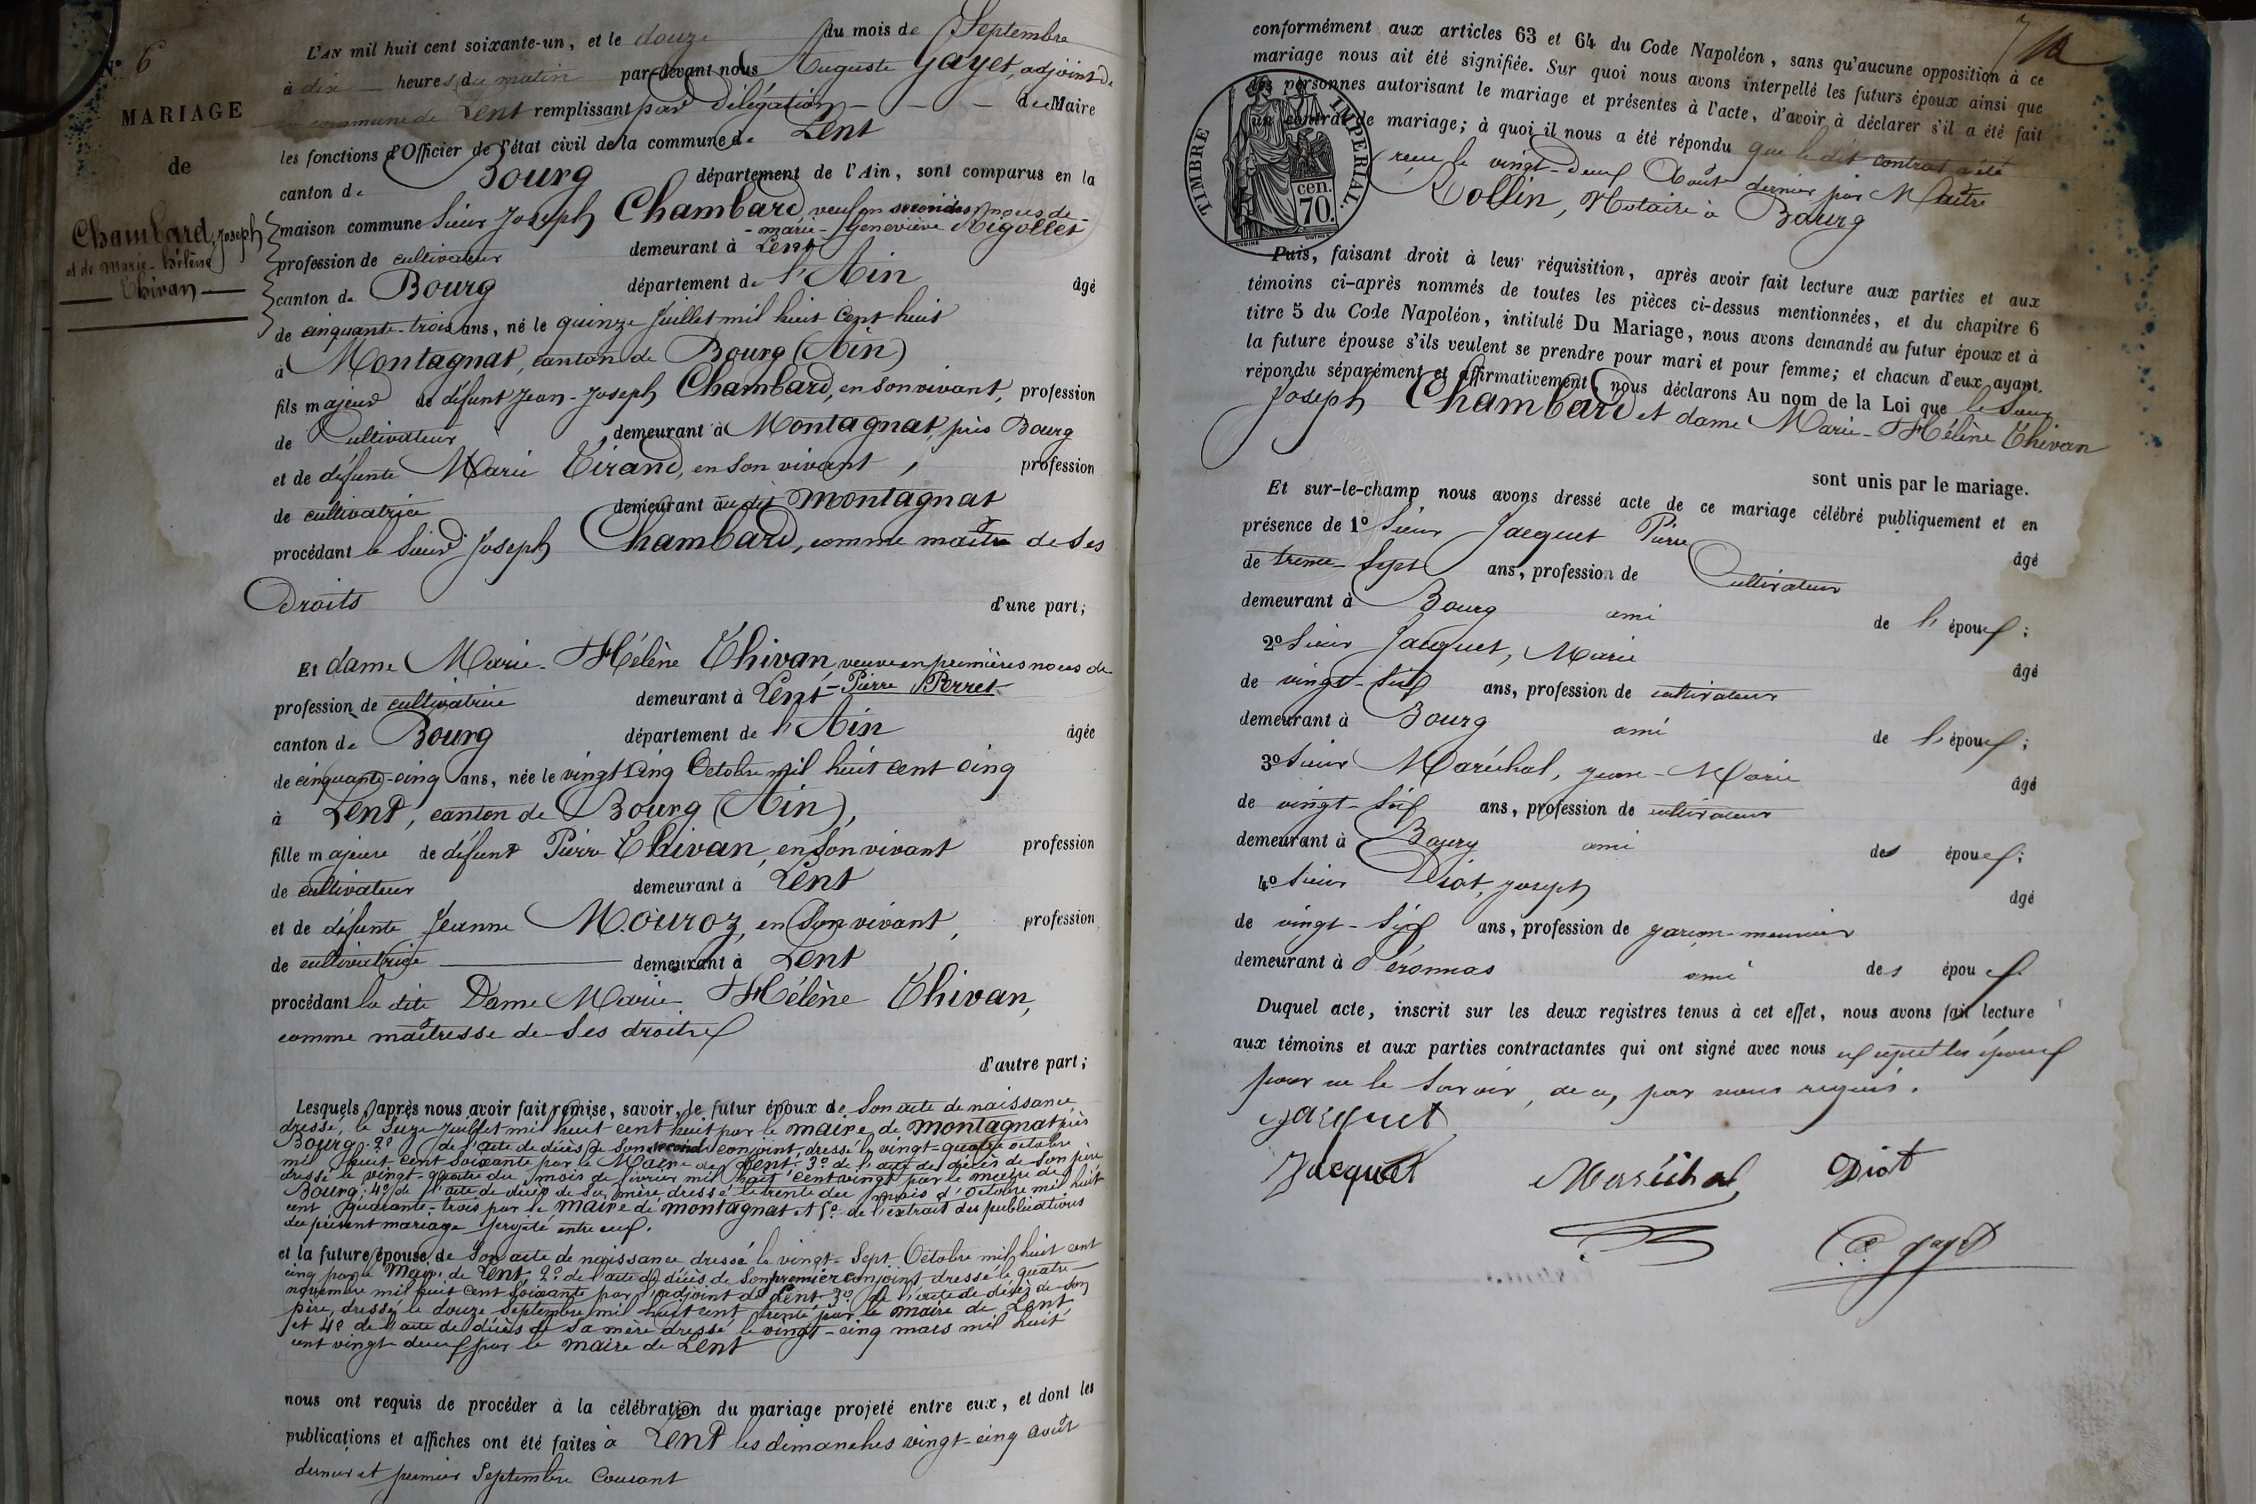 N° 6
MARIAGE
de
Chambard, Joseph
et de Marie-Hélène
Thivan
L'AN mil huit cent soixante-un, et le douze du mois de Septembre
à dix heures du matin par-devant nous Auguste Gayet, adjoint de
la commune de Lent remplissant par Délégation du Maire
les fonctions d'Officier de l'état civil de la commune de Lent
canton de Bourg département de l'Ain, sont comparus en la
maison commune Sieur Joseph Chambard, veuf en secondes noces de
- marie - Geneviève Rigollet
profession de cultivateur demeurant à Lent
canton de Bourg département de l'Ain âgé
de cinquante-trois ans, né le quinze Juillet mil huit cent huit
à Montagnat, canton de Bourg (Ain)
fils majeur de défunt Jean-Joseph Chambard, en son vivant, profession
de Cultivateur demeurant à Montagnat, près Bourg
et de défunte Marie Tirand, en son vivant, profession
de cultivatrice demeurant au dit Montagnat
procédant le Sieur Joseph Chambard, comme maître de ses
Droits d'une part;
Et dame Marie-Hélène Thivan, veuve en premières noces de
- Pierre Perret
profession de cultivatrice demeurant à Lent
canton de Bourg département de l'Ain âgée
de cinquante-cinq ans, née le vingt cinq Octobre mil huit cent cinq
à Lent, canton de Bourg (Ain),
fille majeure de défunt Pierre Thivan, en son vivant profession
de cultivateur demeurant à Lent
et de défunte Jeanne Mouroz, en son vivant, profession
de cultivatrice demeurant à Lent
procédant la dite Dame Marie-Hélène Thivan,
comme maîtresse de ses droits
d'autre part;
Lesquels, après nous avoir fait remise, savoir, le futur époux de Son acte de naissance
dressé, le Seize Juillet mil huit cent huit par le maire de Montagnat près
Bourg 2° de l'acte de décès de son second conjoint, dressé le vingt-quatre octobre
mil huit cent soixante par le Maire de Lent 3° de l'acte de décès de son père
dressé le vingt-quatre du mois de février mil huit cent vingt par le maire de
Bourg; 4° de l'acte de décès de sa mère dressé le trente du mois d'Octobre mil huit
cent quarante-trois par le Maire de Montagnat et 5° de l'extrait des publications
du présent mariage projeté entre eux.
et la future épouse, de Son acte de naissance dressé le vingt-Sept Octobre mil huit cent
cinq par le Maire de Lent 2° de l'acte de décès de son premier conjoint dressé le quatre
novembre mil huit cent soixante par l'adjoint de Lent 3° de l'acte de décès de son
père, dressé le douze septembre mil huit cent trente par le maire de Lent
et 4° de l'acte de décès de sa mère dressé le vingt-cinq mars mil huit
cent vingt deux par le maire de Lent
nous ont requis de procéder à la célébration du mariage projeté entre eux, et dont les
publications et affiches ont été faites à Lent les dimanches vingt-cinq août
dernier et premier Septembre Courant
conformément aux articles 63 et 64 du Code Napoléon, sans qu'aucune opposition à ce
mariage nous ait été signifiée. Sur quoi nous avons interpellé les futurs époux ainsi que
les personnes autorisant le mariage et présentes à l'acte, d'avoir à déclarer s'il a été fait
un contrat de mariage; à quoi il nous a été répondu que le dit contrat a été
reçu le vingt-Deux Août dernier par Maître
Rollin, Notaire à Bourg
TIMBRE IMPÉRIAL.
70 cen.
Puis, faisant droit à leur réquisition, après avoir fait lecture aux parties et aux
témoins ci-après nommés de toutes les pièces ci-dessus mentionnées, et du chapitre 6
titre 5 du Code Napoléon, intitulé Du Mariage, nous avons demandé au futur époux et à
la future épouse s'ils veulent se prendre pour mari et pour femme; et chacun d'eux ayant
répondu séparément et affirmativement, nous déclarons Au nom de la Loi que le Sieur
Joseph Chambard et dame Marie-Hélène Thivan
sont unis par le mariage.
Et sur-le-champ nous avons dressé acte de ce mariage célébré publiquement et en
présence de 1° Sieur Jacquet Pierre âgé
de trente-sept ans, profession de Cultivateur
demeurant à Bourg ami de l'époux;
2° Sieur Jacquet, Marie âgé
de vingt-six ans, profession de cultivateur
demeurant à Bourg ami de l'époux;
3° Sieur Maréchal, Jean-Marie âgé
de vingt-six ans, profession de cultivateur
demeurant à Bourg ami des époux;
4° Sieur Diot, Joseph âgé
de vingt-six ans, profession de garçon-meunier
demeurant à Péronnas ami des époux
Duquel acte, inscrit sur les deux registres tenus à cet effet, nous avons fait lecture
aux témoins et aux parties contractantes qui ont signé avec nous excepté les époux
pour ne le Savoir, de ce, par nous requis.
Jacquet
Jacquet Maréchal Diot
Gayet